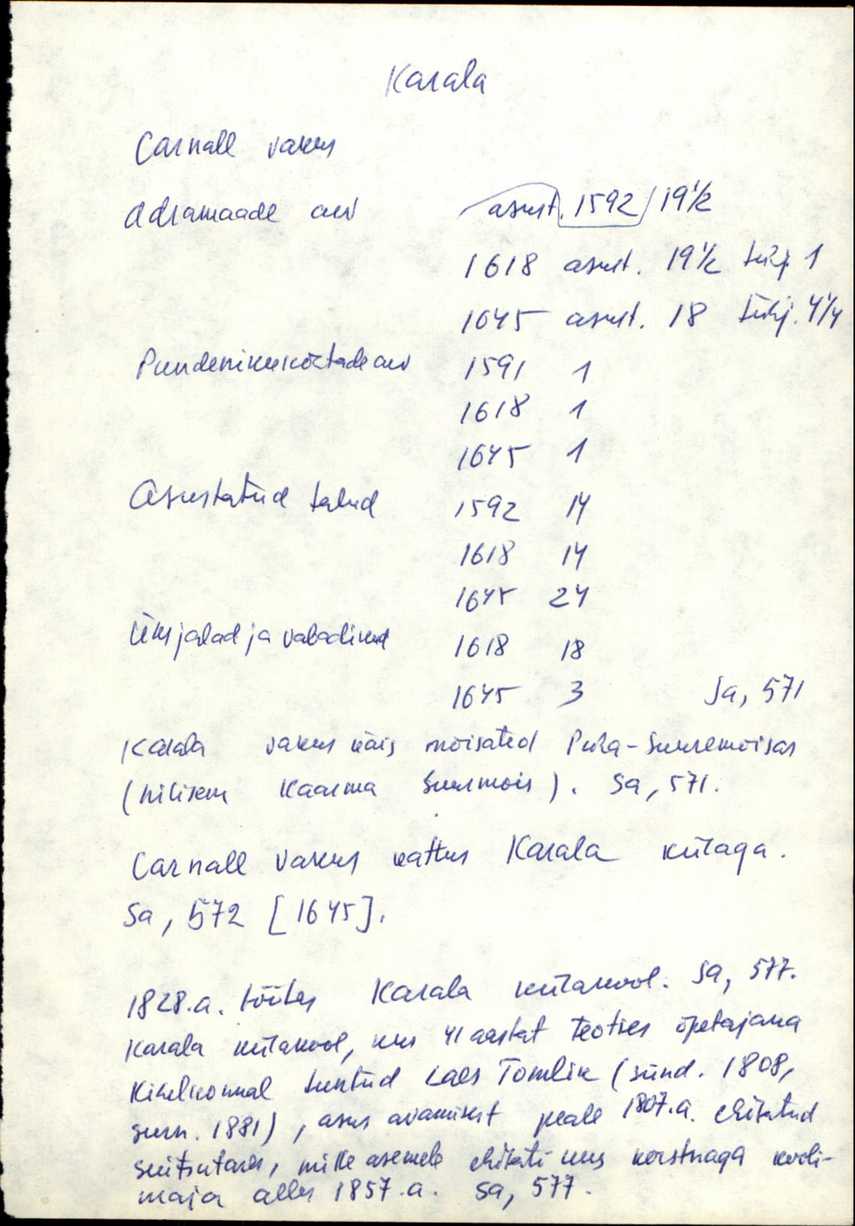 Karala
Carnall vakus
Adramaade arv asust. 1592 19 1/2
1618 asust. 19 1/2 tühj 1
1645 asust. 18 tühj. 4 1/4
Pundenikukohtade arv 1591 1
1618 1
1645 1
Asustatud talud 1592 14
1618 14
1645 24
Üksjalad ja vabadikud 1618 18
1645 3 Sa, 571
Karala vakus käis mõisated Püha-Suuremõisas
(hilisem Kaarma Suurmõis). Sa, 571.
Carnall vakus kattus Karala külaga.
Sa, 572 [1645].
1828.a. töötas Karala külakool. Sa, 577.
Karala külakool, kus 41 aastat teotses õpetajana
kihelkonnal tuntud Laes Tomlik (sünd. 1808,
surn. 1881), asus avamisest peale 1807.a. ehitatud
suitsutares, mille asemele ehitati uus korstnaga kooli-
maja alles 1857.a. Sa, 577.